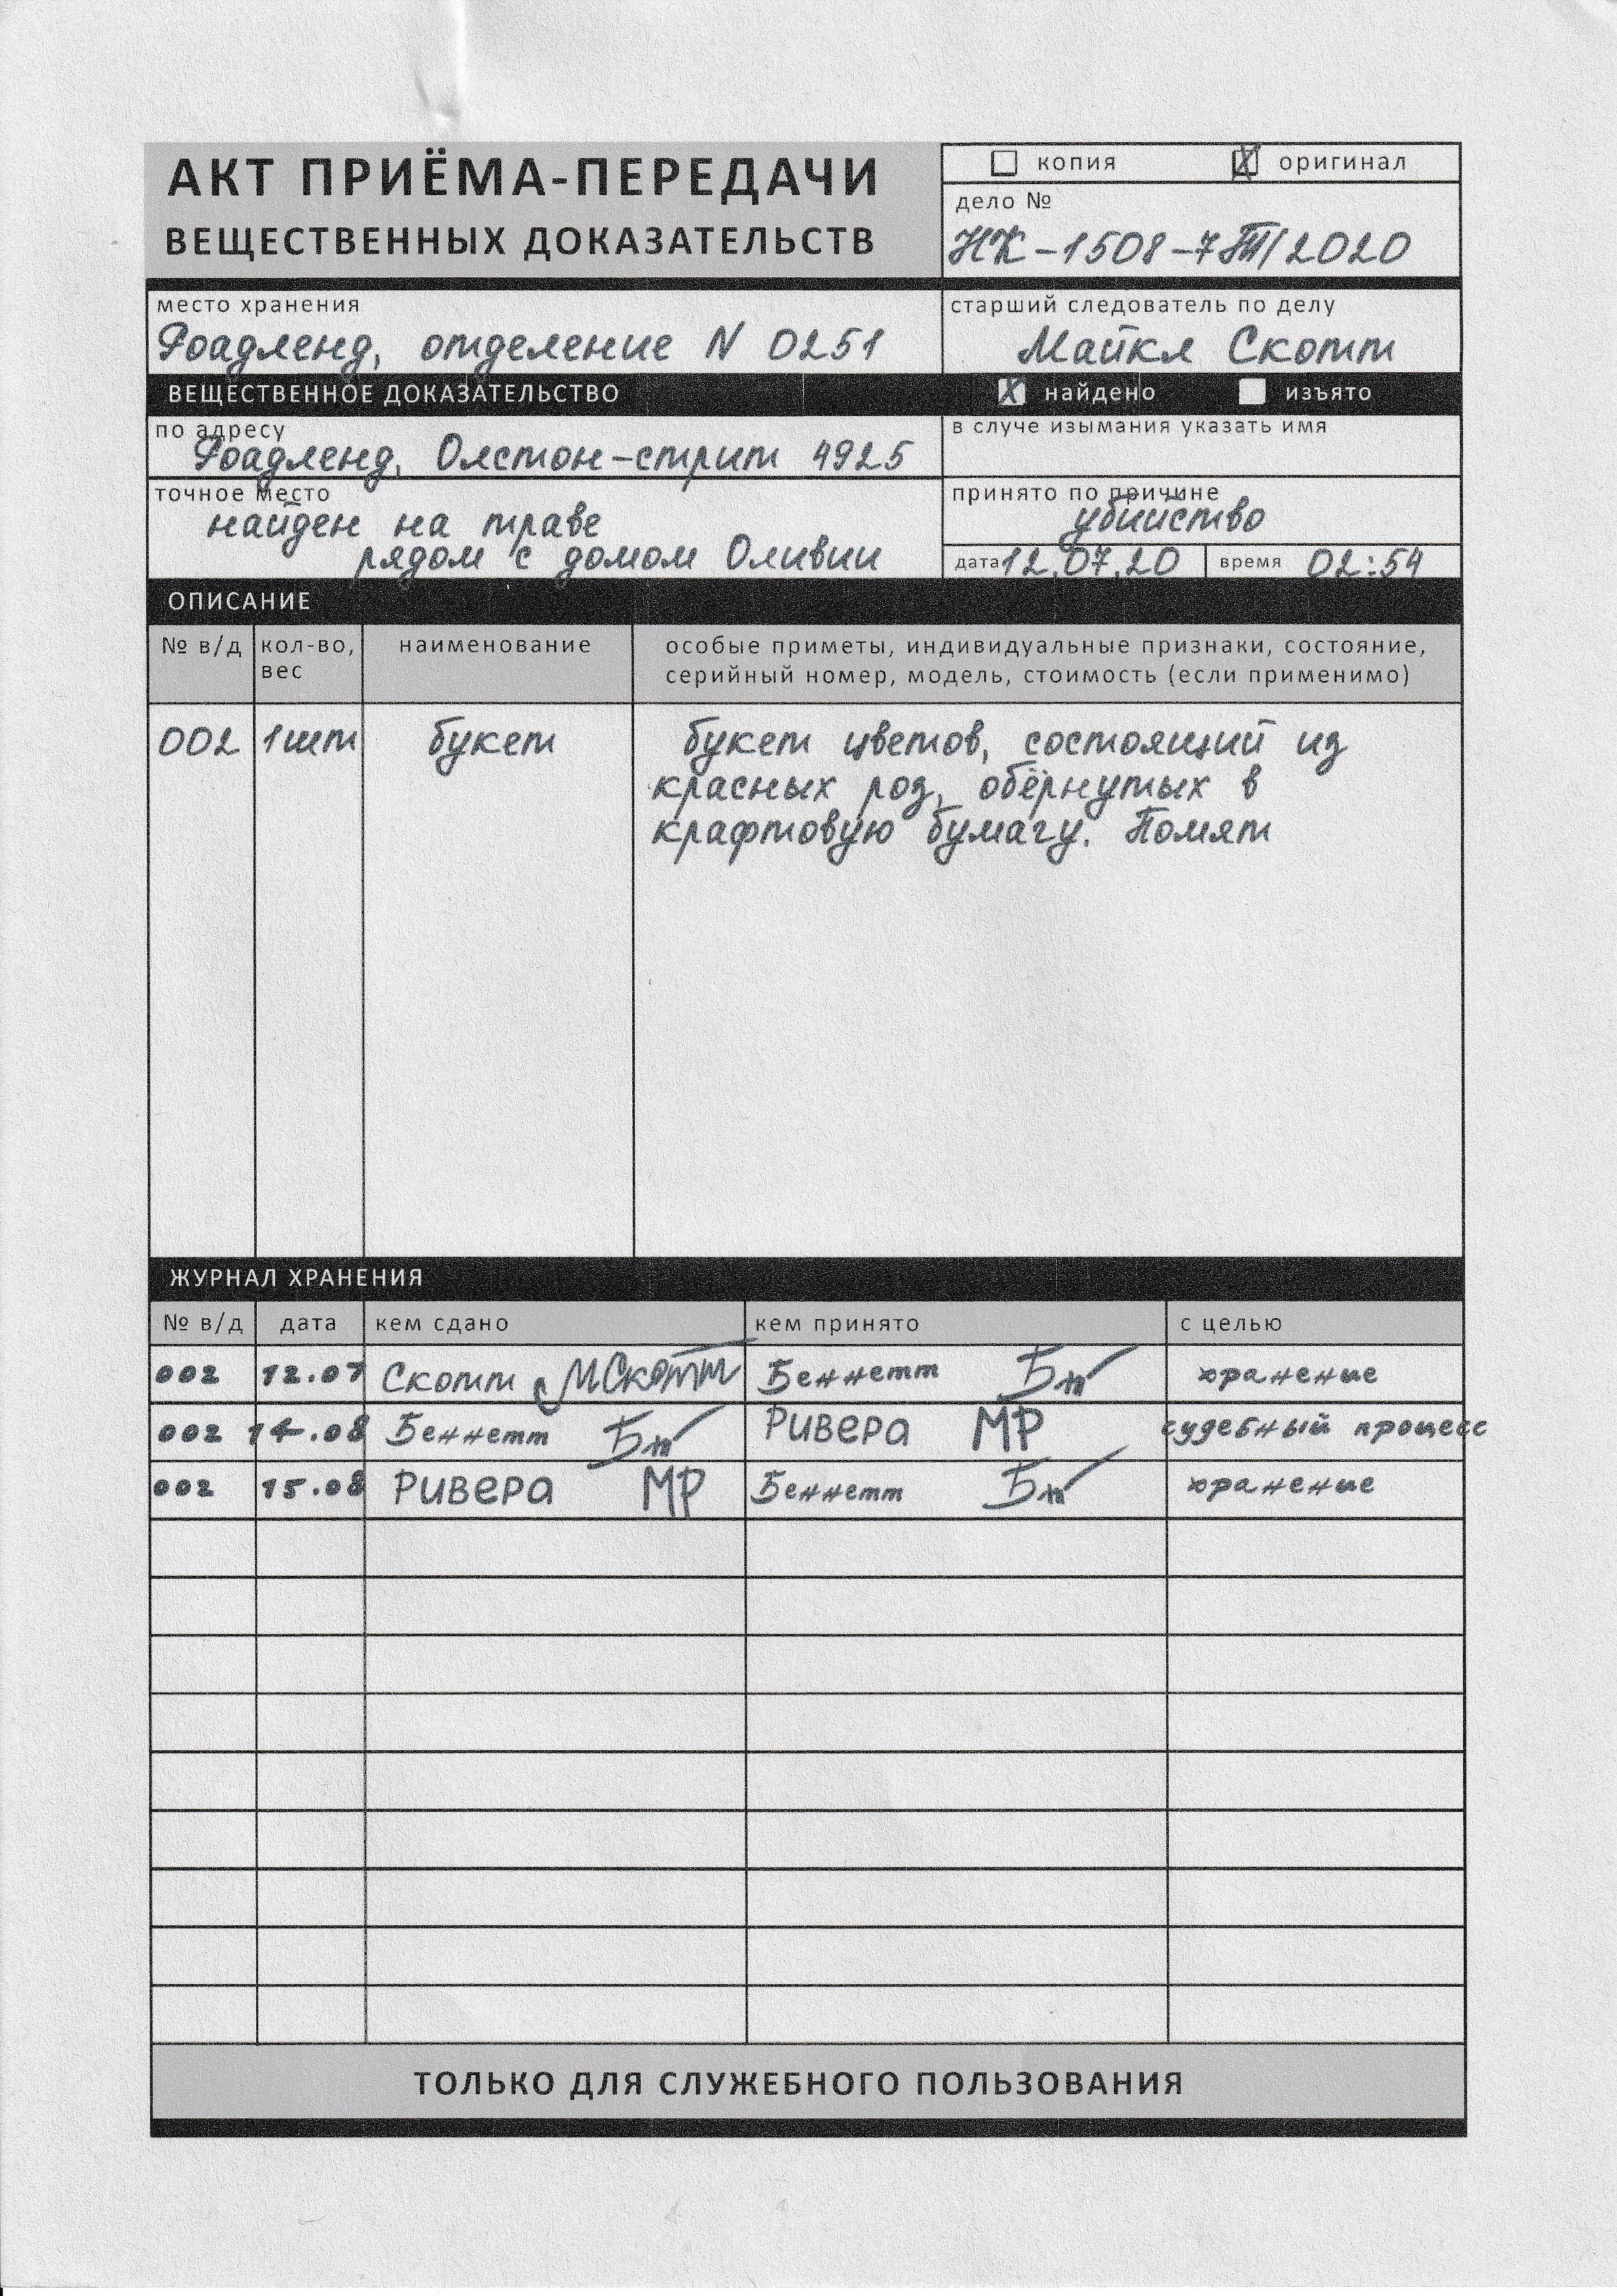 АКТ ПРИЁМА-ПЕРЕДАЧИ
ВЕЩЕСТВЕННЫХ ДОКАЗАТЕЛЬСТВ
копия оригинал
дело №
НК-1508-7ТТ/2020
место хранения
Роадленд, отделение N 0251
старший следователь по делу
Майкл Скотт
ВЕЩЕСТВЕННОЕ ДОКАЗАТЕЛЬСТВО
найдено изъято
по адресу
Роадленд, Олстон-стрит 4925
в случе изымания указать имя
точное место
найден на траве
рядом с домом Оливии
принято по причине
убийство
дата 12.07.20 время 02:54
ОПИСАНИЕ
№ в/д кол-во, вес наименование особые приметы, индивидуальные признаки, состояние,
серийный номер, модель, стоимость (если применимо)
002 1шт букет букет цветов, состоящий из
красных роз, обёрнутых в
крафтовую бумагу. Помят
ЖУРНАЛ ХРАНЕНИЯ
№ в/д дата кем сдано кем принято с целью
002 12.07 Скотт МСкотт Беннетт Бт хранение
002 14.08 Беннетт Бт Ривера МР судебный процесс
002 15.08 Ривера МР Беннетт Бт хранение
ТОЛЬКО ДЛЯ СЛУЖЕБНОГО ПОЛЬЗОВАНИЯ